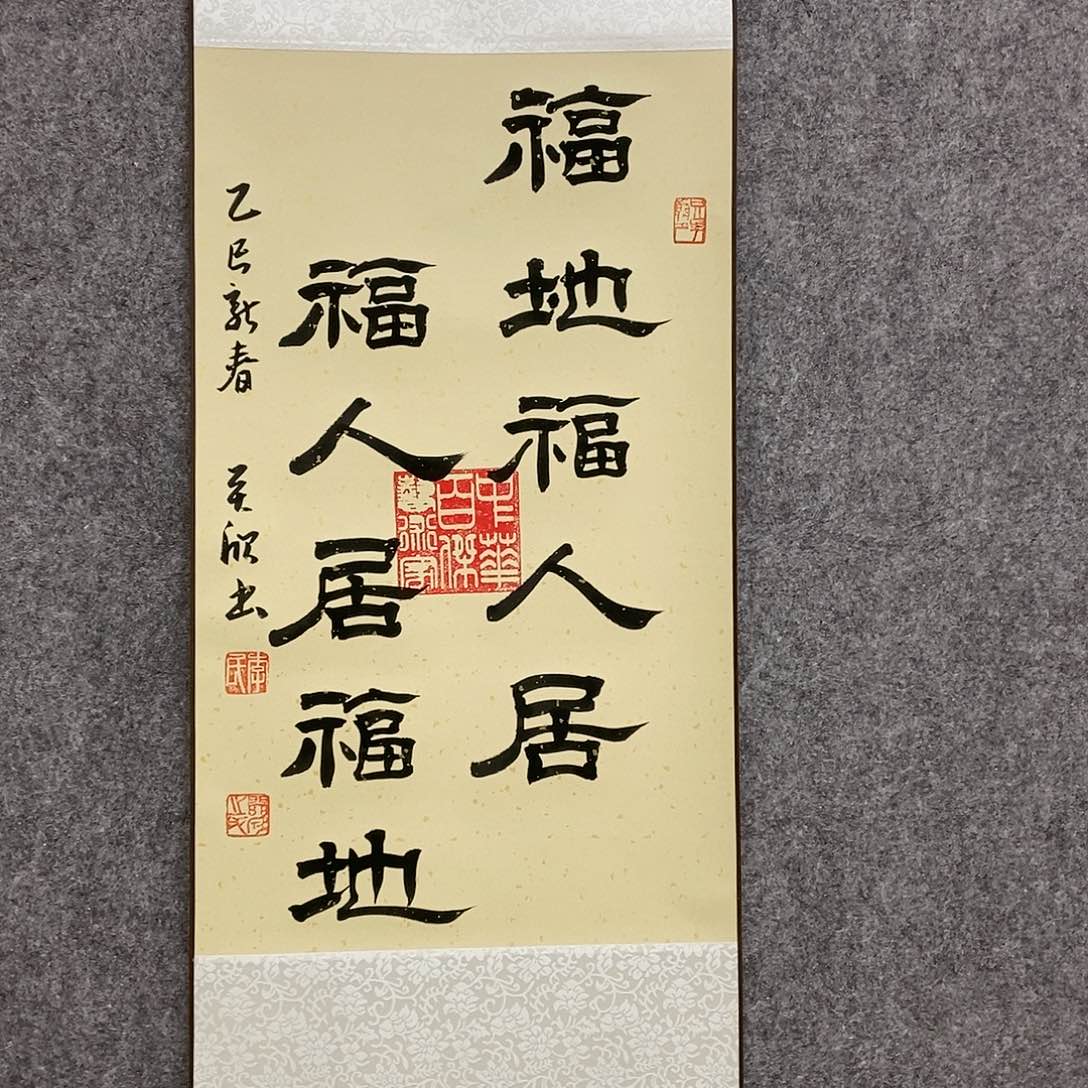 福地福人居
福人居福地
乙巳新春
书
中华百杰艺术家